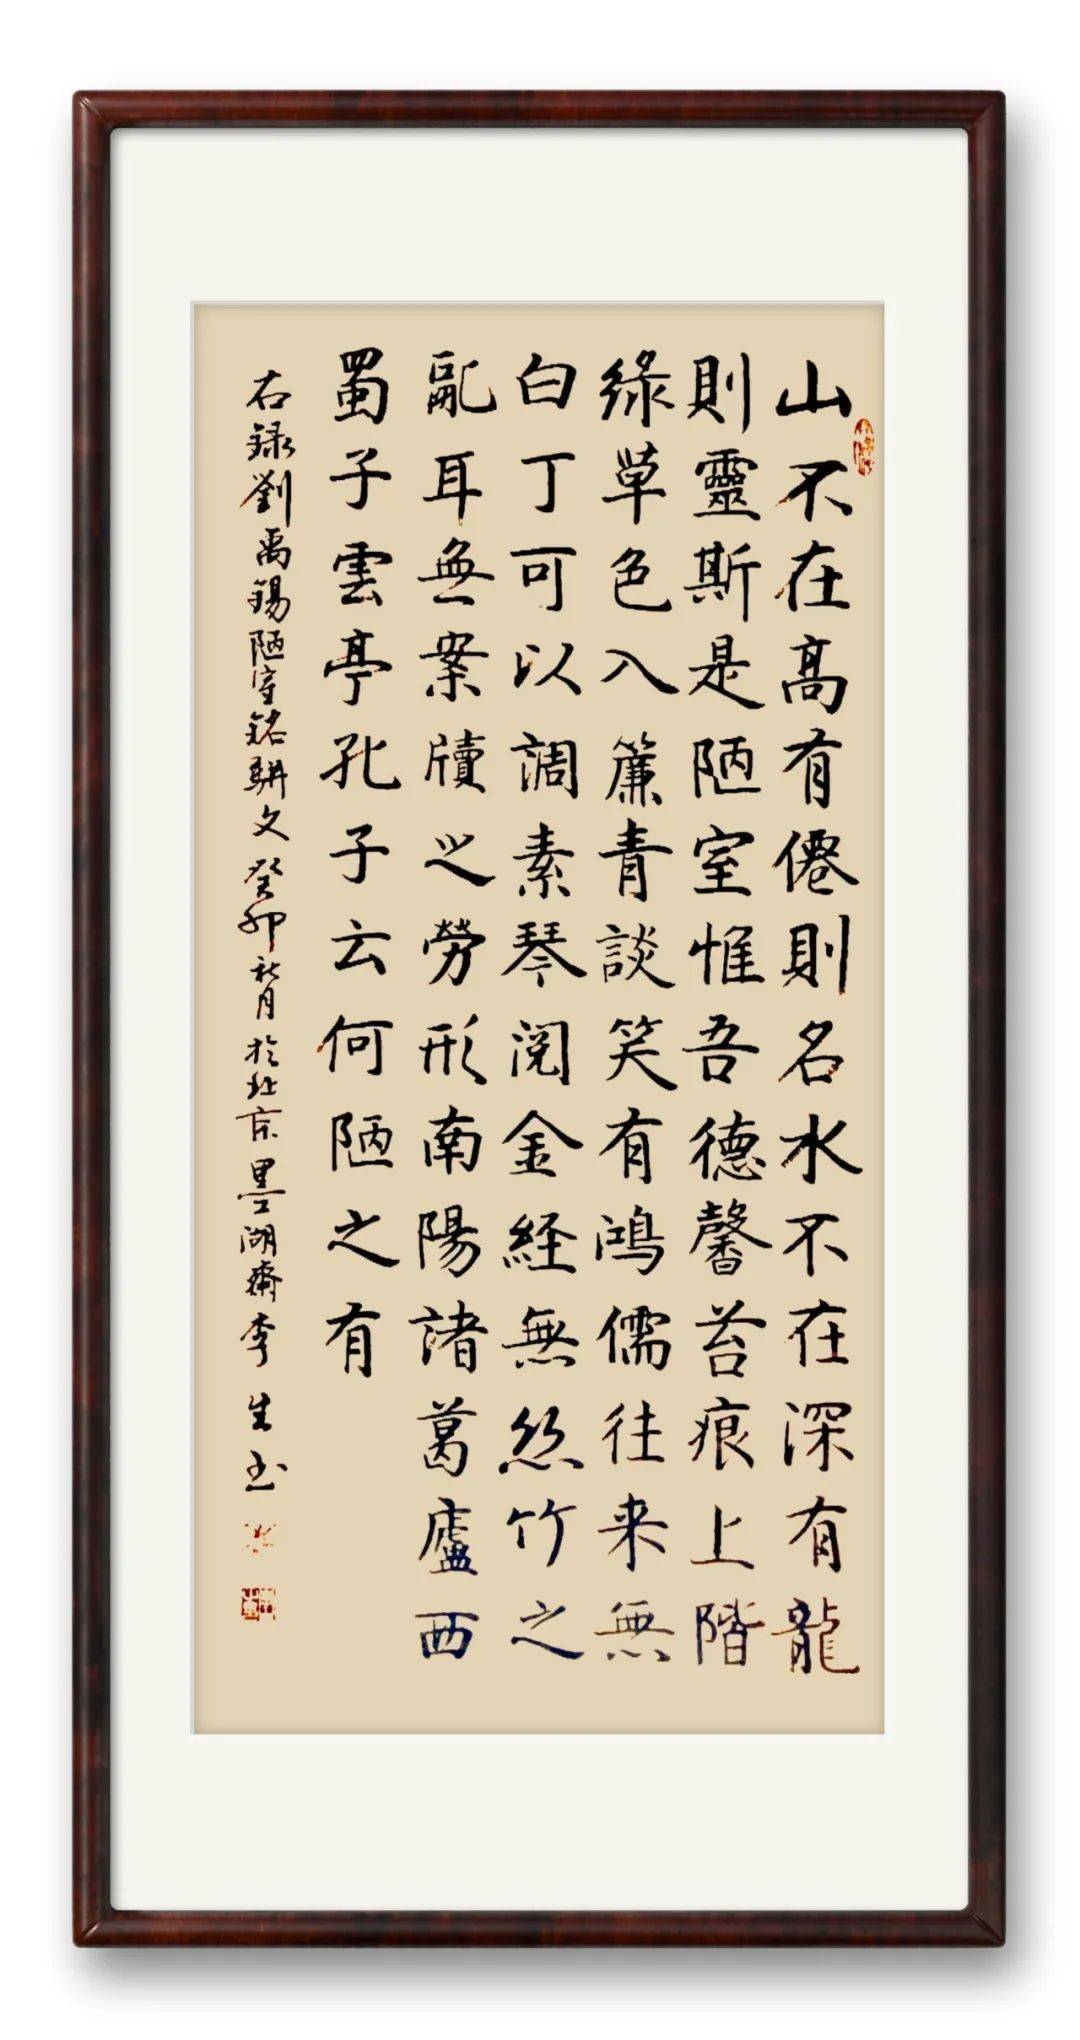 山不在高有僊則名水不在深有龍
則靈斯是陋室惟吾德馨苔痕上階
綠草色入簾青談笑有鴻儒往来無
白丁可以調素琴閱金経無絲竹之
亂耳無案牘之勞形南陽諸葛廬西
蜀子雲亭孔子云何陋之有
右録劉禹錫陋室銘駢文癸卯秋月於北京墨湖齋李生书